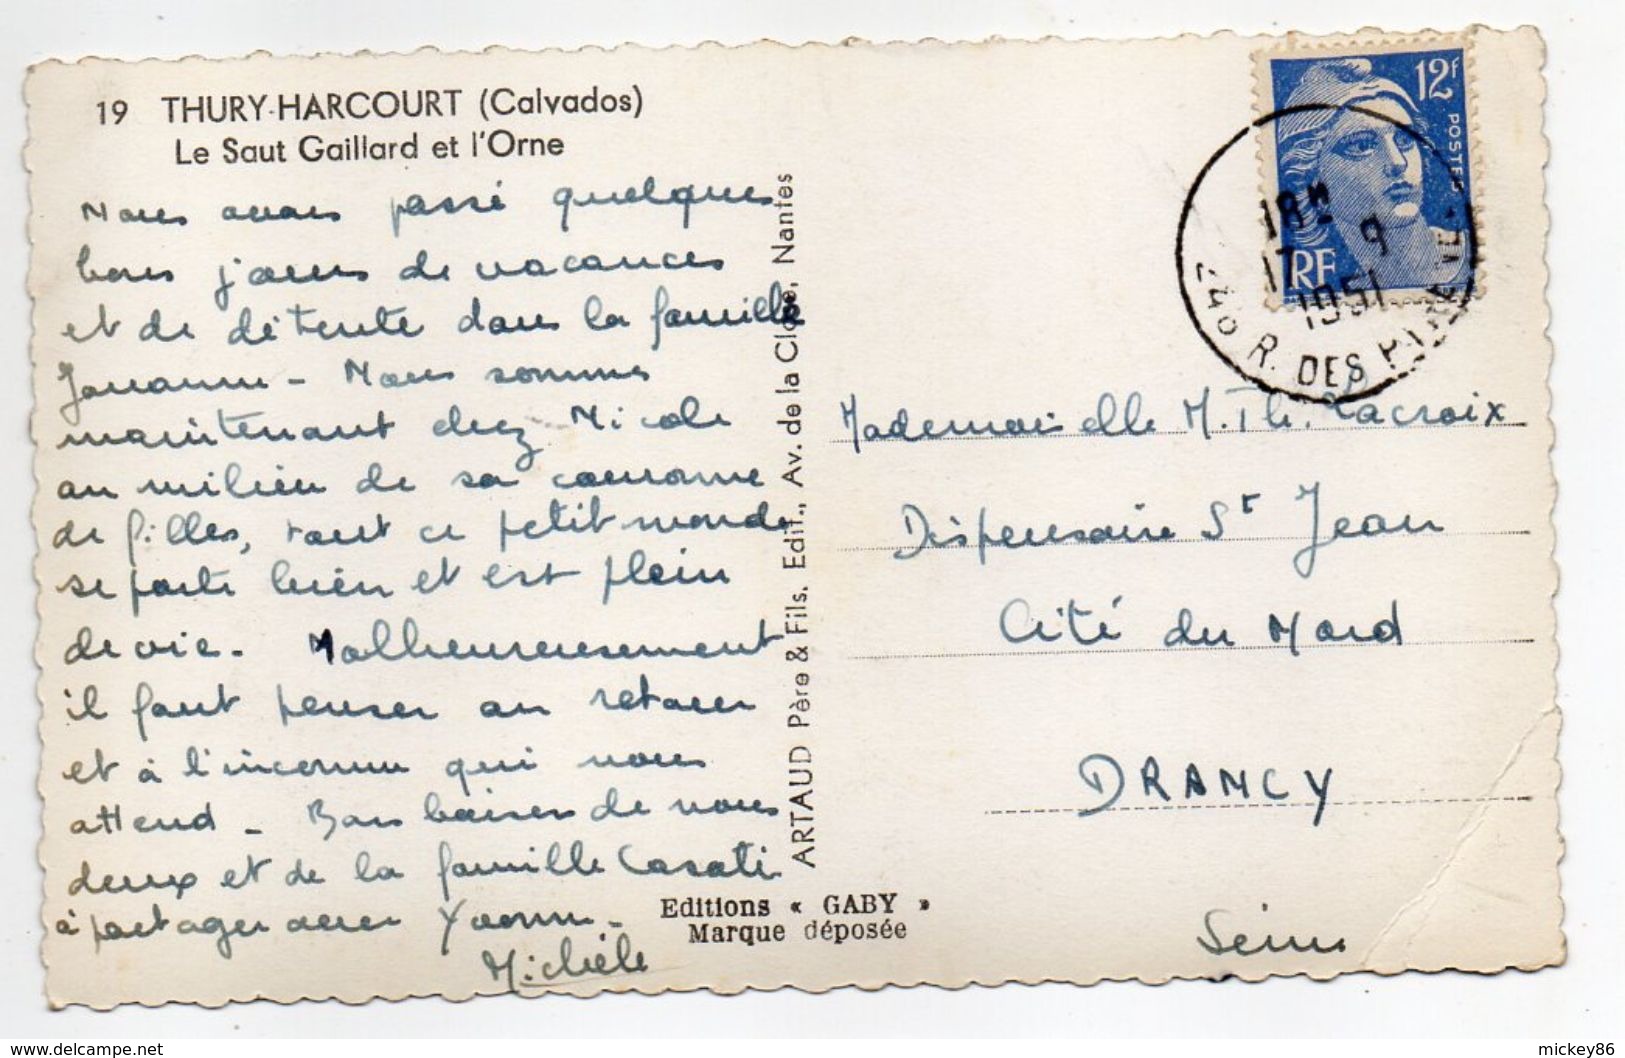 19 THURY-HARCOURT (Calvados)
Le Saut Gaillard et l'Orne
Nous avons passé quelques
bons jours de vacances
et de détente dans la famille
Jouanne - Nous sommes
maintenant chez Nicole
au milieu de sa couronne
de filles, tout ce petit monde
se porte bien et est plein
de vie. Malheureusement
il faut penser au retour
et à l'inconnu qui nous
attend - Bons baisers de nous
deux et de la famille Casati
à partager avec Yvonne -
Michèle
ARTAUD Père & Fils. Edit., Av. de la Close, Nantes
Editions « GABY »
Marque déposée
12F
POSTES
RF
18H
17 9
1951
R. DES
Mademoiselle M. Th. Lacroix
Dispensaire St Jean
Cité du Nord
DRANCY
Seine
www.delcampe.net
mickey86